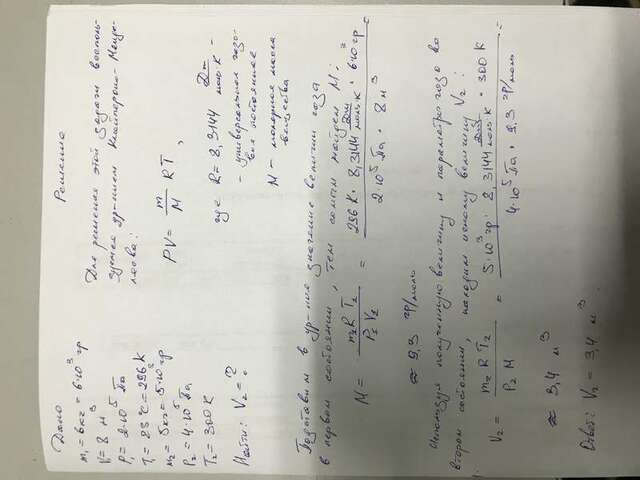 Дано
m₁ = 6кг = 6·10³ гр
V₁ = 8 м³
P₁ = 2·10⁵ Па
T₁ = 23°C = 296 К
m₂ = 5кг = 5·10³ гр
P₂ = 4·10⁵ Па
T₂ = 300 К
Найти: V₂ = ?
Решение
Для решения этой задачи воспользуемся ур-нием Клайперона-Менделеева:
PV = m/M RT,
где R = 8,3144 Дж/моль К -
- универсальная газовая постоянная
M - молярная масса вещества
Подставим в ур-ние значение величин газа
в первом состоянии, тем самым найдем M:
M = m₂ R T₂ / P₂ V₂ = 296 К · 8,3144 Дж/моль К · 6·10³ гр / 2·10⁵ Па · 8 м³ =
≈ 9,3 гр/моль
Используя полученную величину и параметры газа во
втором состоянии, находим искомую величину V₂:
V₂ = m₂ R T₂ / P₂ M = 5·10³ гр · 8,3144 Дж/моль К · 300 К / 4·10⁵ Па · 9,3 гр/моль =
≈ 3,4 м³
Ответ: V₂ = 3,4 м³